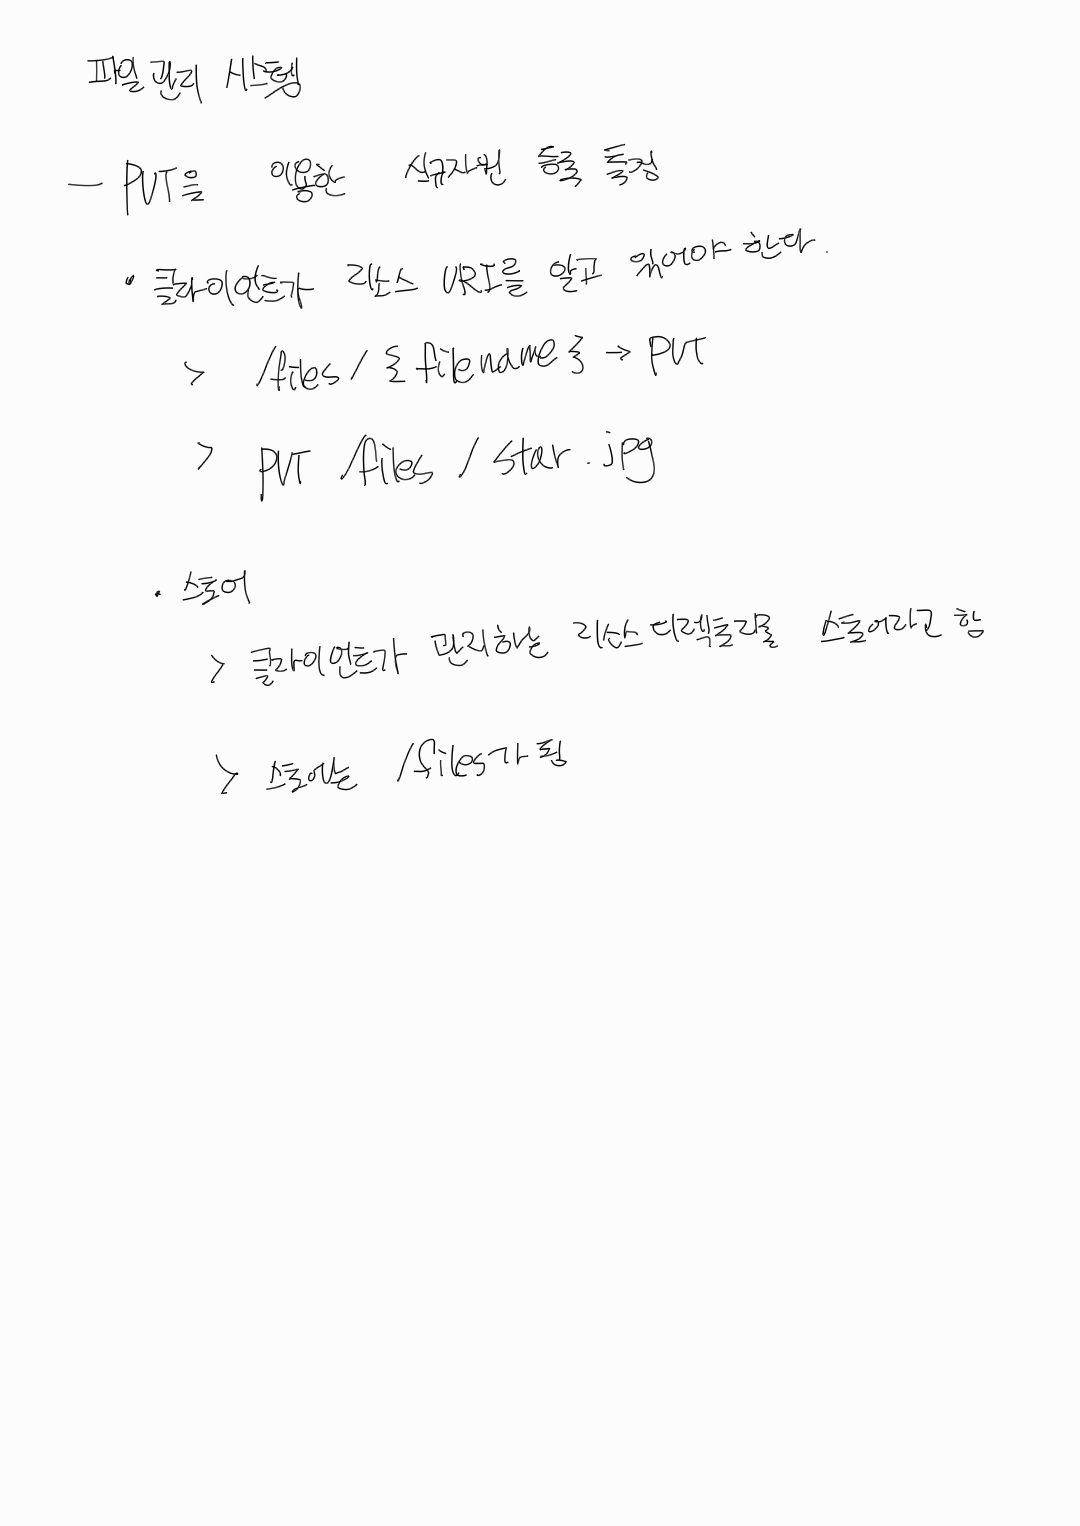 파일 관리 시스템
— PUT을 이용한 신규자원 등록 특징
• 클라이언트가 리소스 URI를 알고 있어야 한다.
> /files/{filename} → PUT
> PUT /files/star.jpg
• 스토어
> 클라이언트가 관리하는 리소스 디렉토리를 스토어라고 함
> 스토어는 /files가 됨